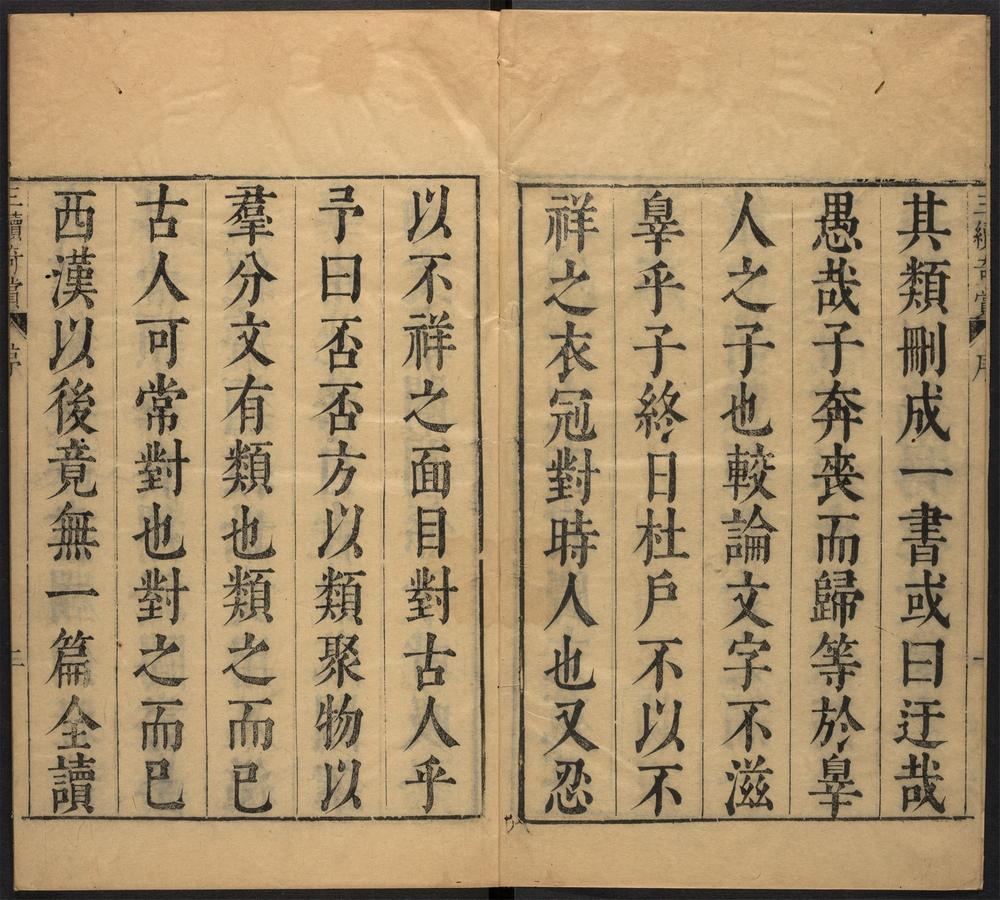 三續奇賞
序
一
其類刪成一書或曰迂哉
愚哉子奔喪而歸等於辠
人之子也較論文字不滋
辠乎子終日杜戶不以不
祥之衣冠對時人也又忍
以不祥之面目對古人乎
予曰否否方以類聚物以
羣分文有類也類之而已
古人可常對也對之而已
西漢以後竟無一篇全讀
三續奇賞
序
二